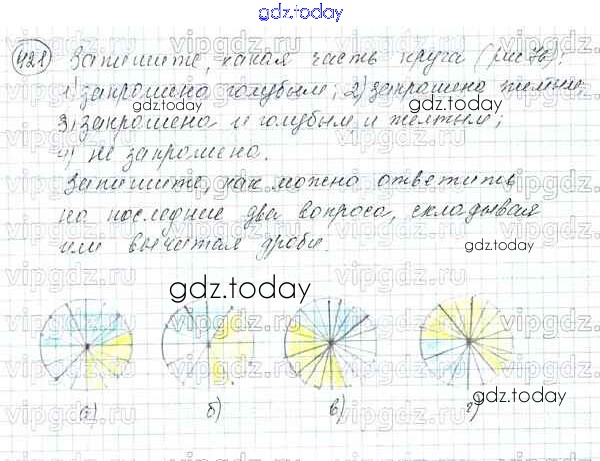 gdz.today
421 Запишите, какая часть круга (рис 76):
1) закрашена голубым; 2) закрашена желтым;
gdz.today
3) закрашена и голубым и желтым;
4) не закрашена.
Запишите, как можно ответить
на последние два вопроса, складывая
или вычитая дроби.
gdz.today
gdz.today
а) б) в) г)
gdz.today